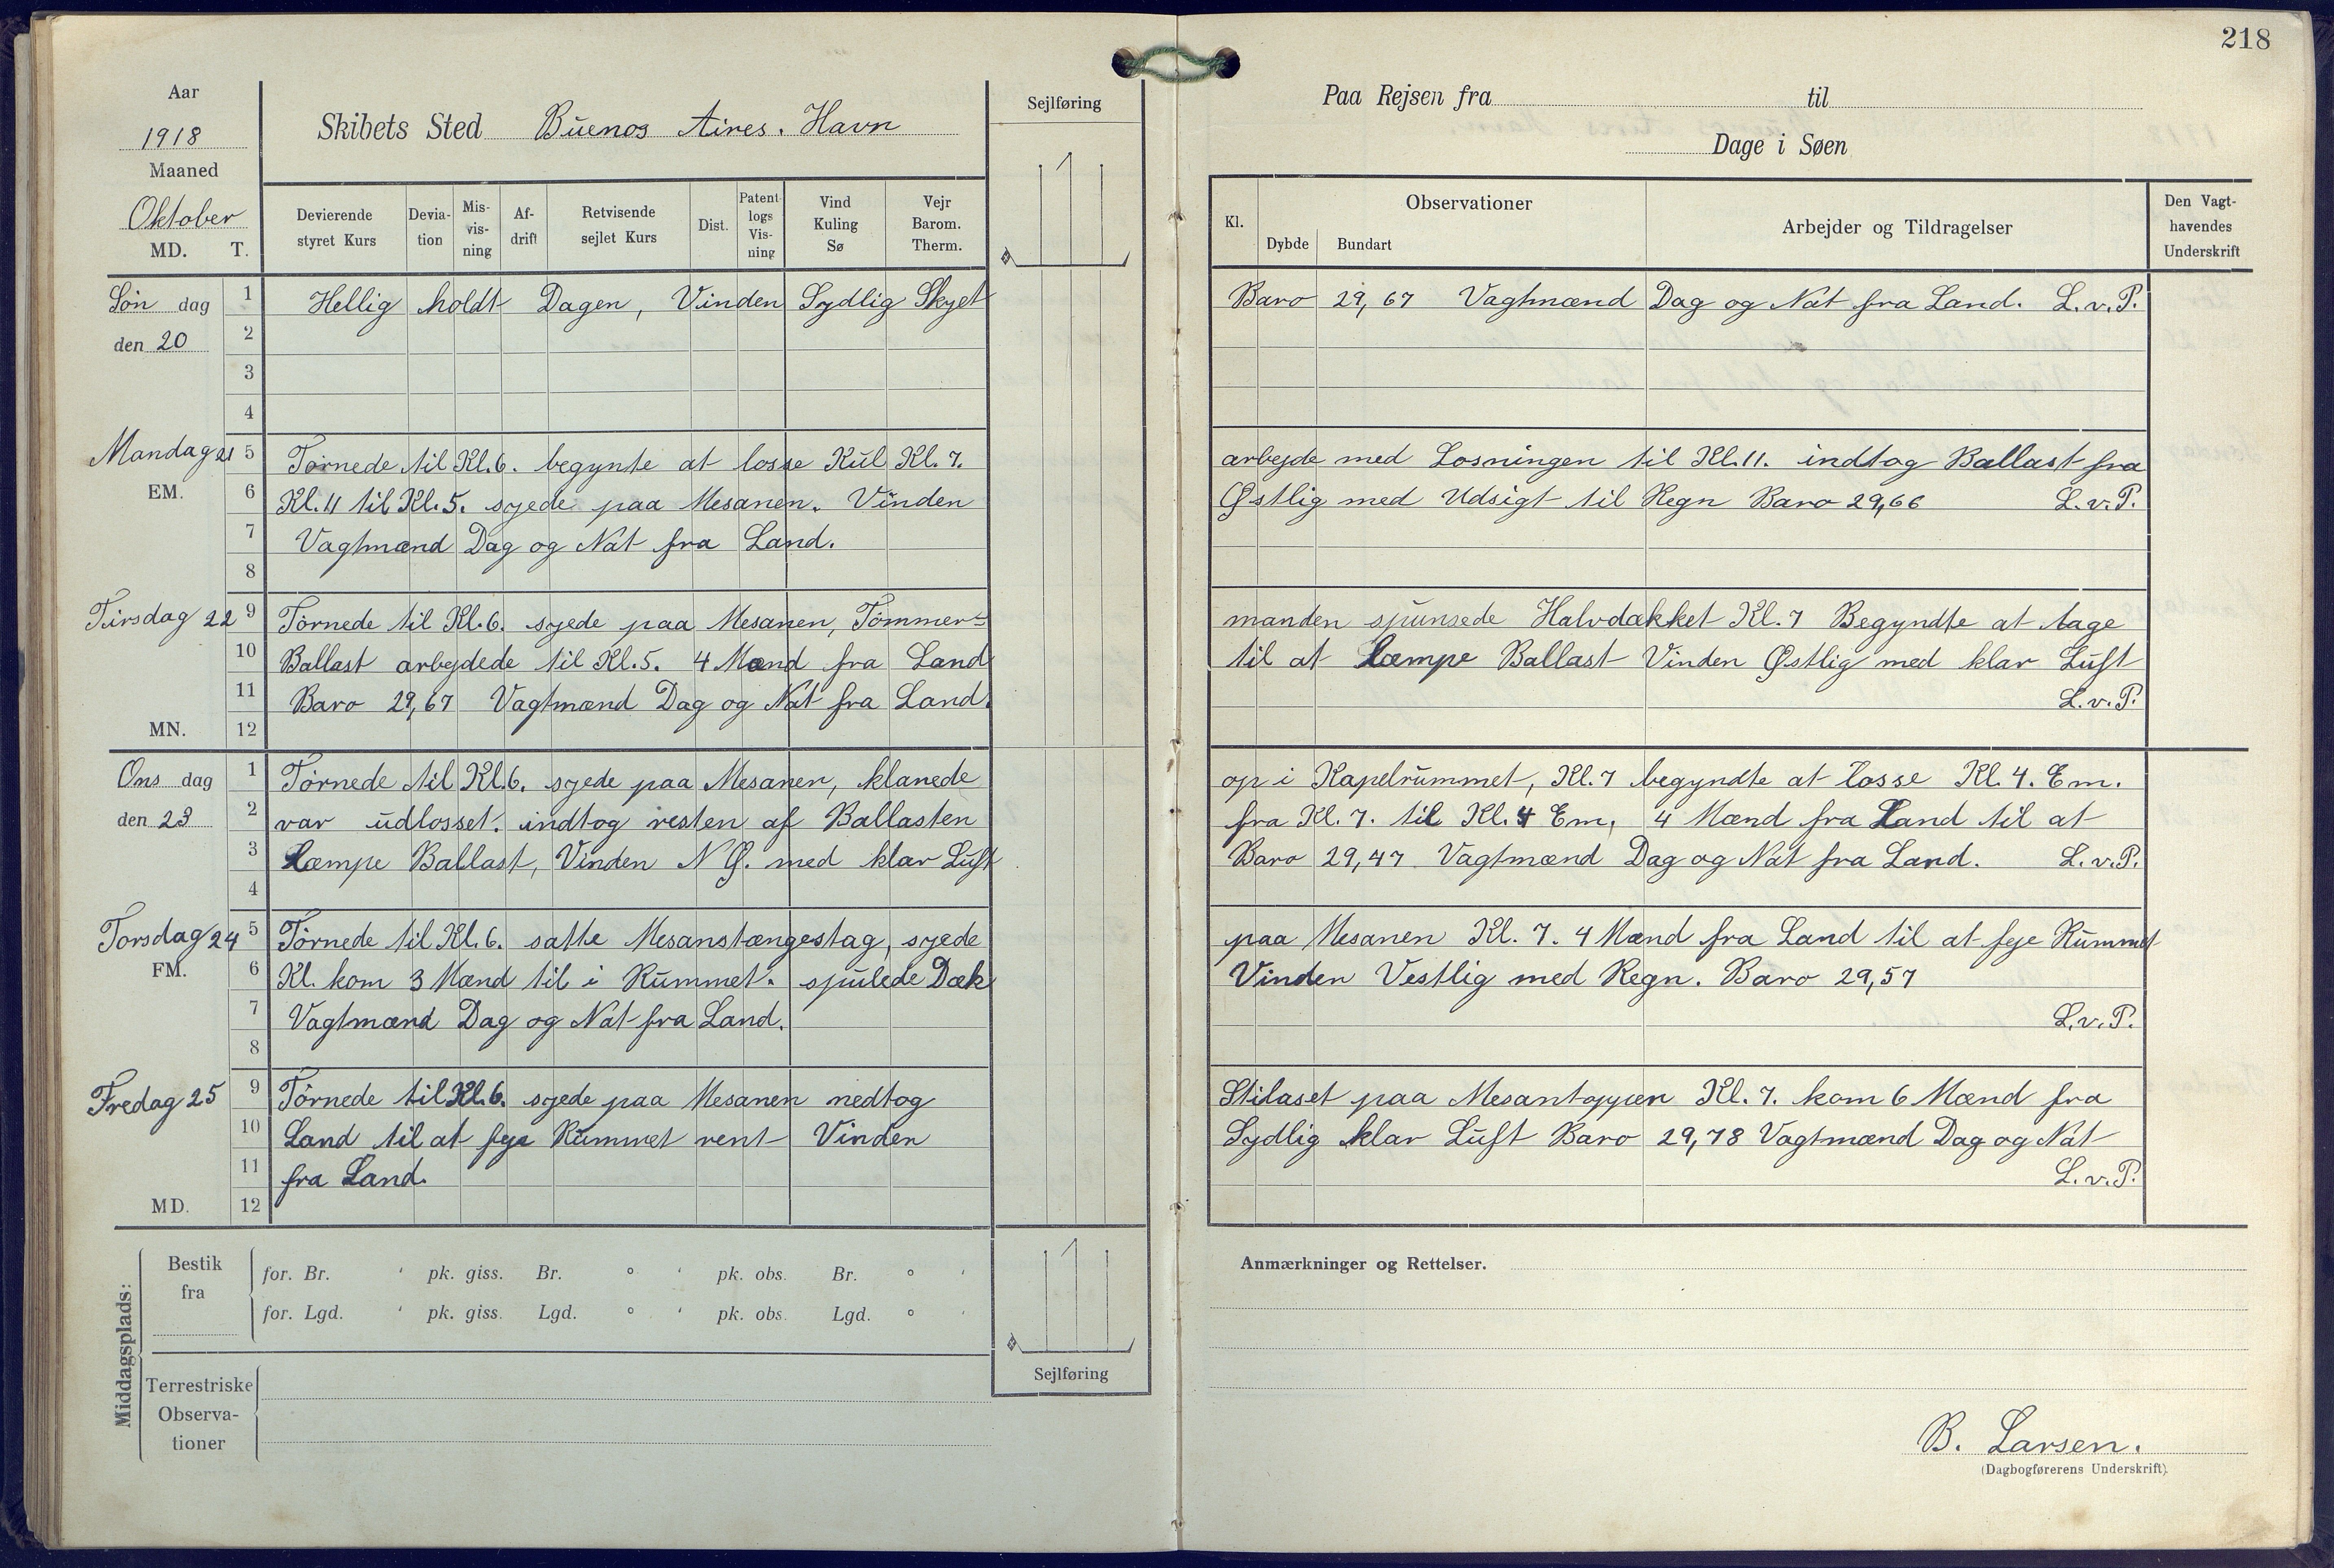 218
Aar
1918
Maaned
Oktober
MD. T.
Skibets Sted Buenos Aires. Havn
Sejlføring
Paa Rejsen fra til
Dage i Søen
Devierende styret Kurs
Deviation
Misvisning
Afdrift
Retvisende sejlet Kurs
Dist.
Patent logs Visning
Vind Kuling Sø
Vejr Barom. Therm.
Kl.
Observationer
Dybde Bundart
Arbejder og Tildragelser
Den Vagthavendes Underskrift
Søn dag 1 Hellig holdt Dagen, Vinden Sydlig Skyet Baro 29,67 Vagtmænd Dag og Nat fra Land. L.v.P.
den 20 2
3
4
Mandag 21 5 Tørnede til Kl.6. begynte at losse Kul Kl.7. arbejde med Losningen til Kl.11. indtog Ballast fra
EM. 6 Kl.11 til Kl.5. syede paa Mesanen. Vinden Østlig med Udsigt til Regn Baro 29,66 L.v.P.
7 Vagtmænd Dag og Nat fra Land.
8
Tirsdag 22 9 Tørnede til Kl.6. syede paa Mesanen, Tømmer= manden spunsede Halvdækket Kl.7 Begyndte at tage
10 Ballast arbejdede til Kl.5. 4 Mænd fra Land til at Læmpe Ballast Vinden Østlig med klar Luft
11 Baro 29,67 Vagtmænd Dag og Nat fra Land. L.v.P.
MN. 12
Ons dag 1 Tørnede til Kl.6. syede paa Mesanen, klarede op i Kapelrummet, Kl.7 begyndte at losse Kl.4. Em.
den 23 2 var udlosset. indtog resten af Ballasten fra Kl.7. til Kl.4 Em, 4 Mænd fra Land til at
3 Læmpe Ballast, Vinden N Ø. med klar Luft Baro 29,47 Vagtmænd Dag og Nat fra Land. L.v.P.
4
Torsdag 24 5 Tørnede til Kl.6. satte Mesanstængestag, syede paa Mesanen Kl.7. 4 Mænd fra Land til at feje Rummet
FM. 6 Kl. kom 3 Mænd til i Rummet. spulede Dæk Vinden Vestlig med Regn. Baro 29,57
7 Vagtmænd Dag og Nat fra Land. L.v.P.
8
Fredag 25 9 Tørnede til Kl.6. syede paa Mesanen nedtog Stilaset paa Mesantoppen Kl.7. kom 6 Mænd fra
10 Land til at feje Rummet rent Vinden Sydlig klar Luft Baro 29,78 Vagtmænd Dag og Nat
11 fra Land. L.v.P.
MD. 12
Middagsplads:
Bestik fra
for. Br. ' pk. giss. Br. ° ' pk. obs. Br. ° '
for. Lgd. ' pk. giss. Lgd. ° ' pk. obs. Lgd. ° '
Terrestriske Observationer
Sejlføring
Anmærkninger og Rettelser.
B. Larsen.
(Dagbogførerens Underskrift).